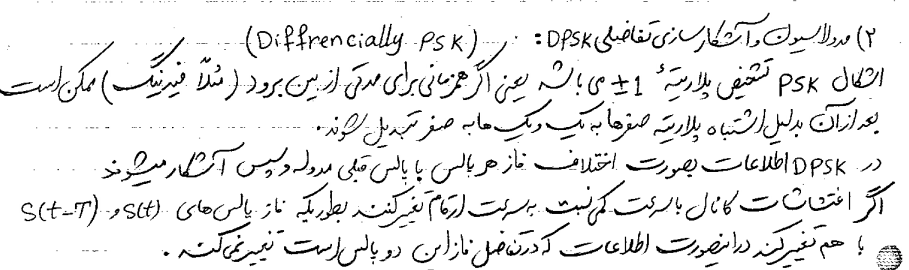 ۲) مدولاسیون و آشکارسازی تفاضلی DPSK: (Diffrencially PSK)
اشکال PSK تشخیص پلاریته ±1 می باشد یعنی اگر همزمانی برای مدتی از بین برود (مثلاً فیدینگ) ممکن است
بعد از آن بدلیل اشتباه پلاریته صفرها به یک و یک ها به صفر تبدیل شوند.
در DPSK اطلاعات بصورت اختلاف فاز هر پالس با پالس قبلی مدوله و سپس آشکار میشوند
اگر اغتشاشات کانال با سرعت کمی نسبت به سرعت ارقام تغییر کنند بطوریکه فاز پالس های S(t) و S(t-T)
با هم تغییر کند در اینصورت اطلاعات که در تفاضل فاز این دو پالس است تغییر نمی کند.